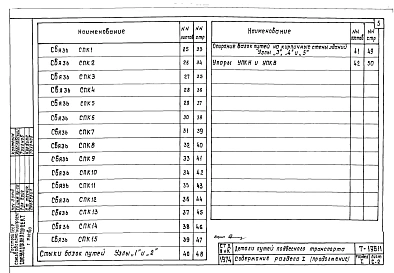 3
Наименование NN листов NN стр
Связь СПК1 25 33
Связь СПК2 26 34
Связь СПК3 27 35
Связь СПК4 28 36
Связь СПК5 29 37
Связь СПК6 30 38
Связь СПК7 31 39
Связь СПК8 32 40
Связь СПК9 33 41
Связь СПК10 34 42
Связь СПК11 35 43
Связь СПК12 36 44
Связь СПК13 37 45
Связь СПК14 38 46
Связь СПК15 39 47
Стыки балок путей Узлы „1" и „2" 40 48
Наименование NN листов NN стр
Опирание балок путей на кирпичные стены зданий
Узлы „3", „4" и „5" 41 49
Упоры УПК1 и УПК2 42 50
Детали путей подвесного транспорта
1974 Содержание раздела I (продолжение)